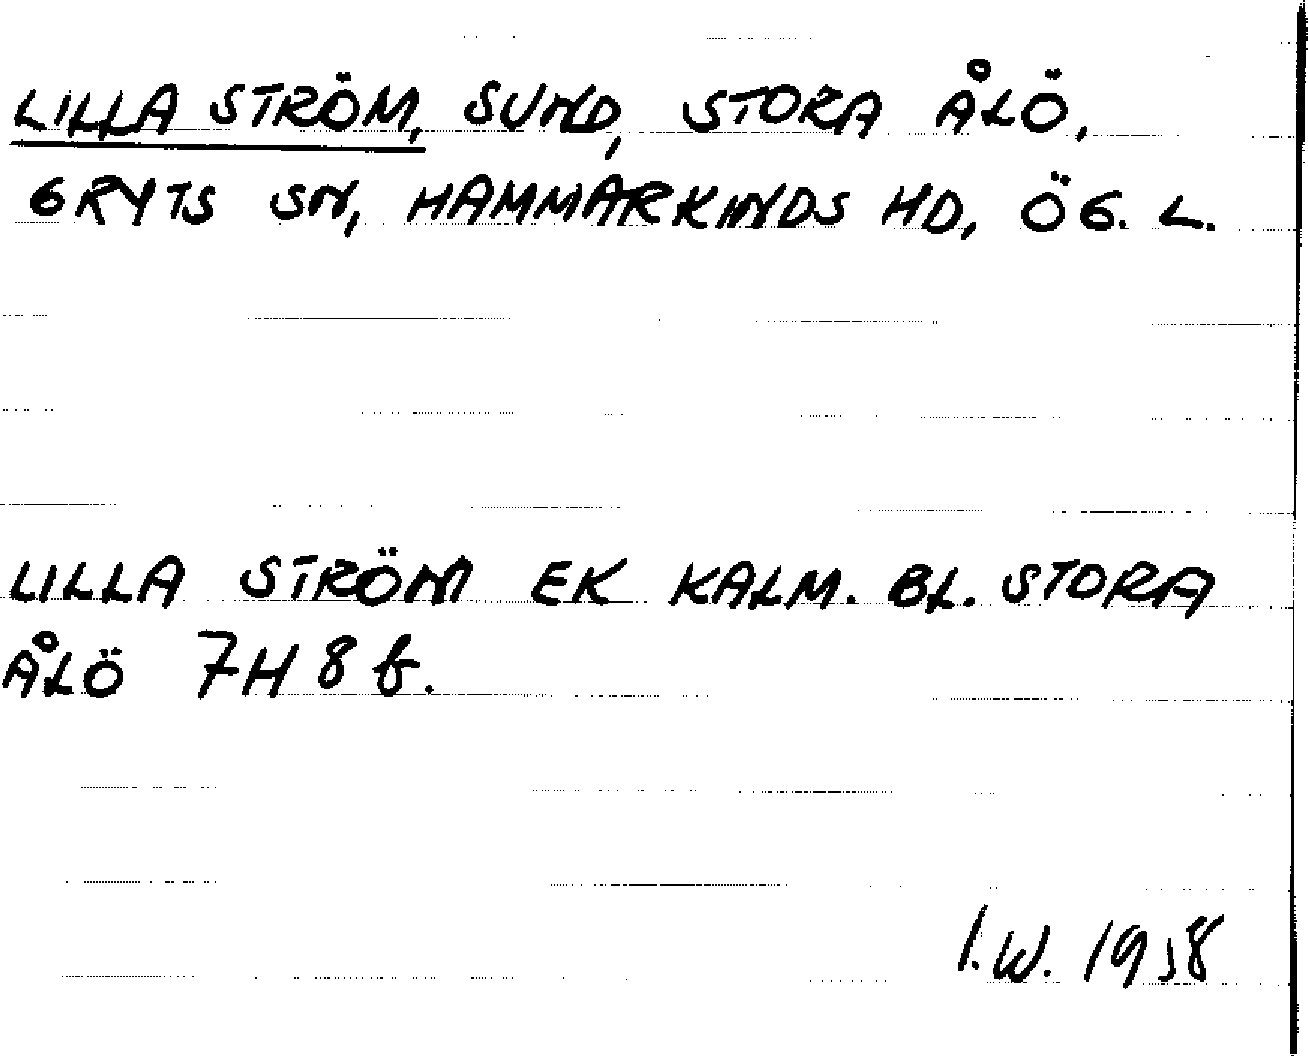 LILLA STRÖM, SUND, STORA ÅLÖ,
GRYTS SN, HAMMARKINDS HD, ÖG. L.
LILLA STRÖM EK KALM. BL. STORA
ÅLÖ 7H 8 f.
I.W. 1958